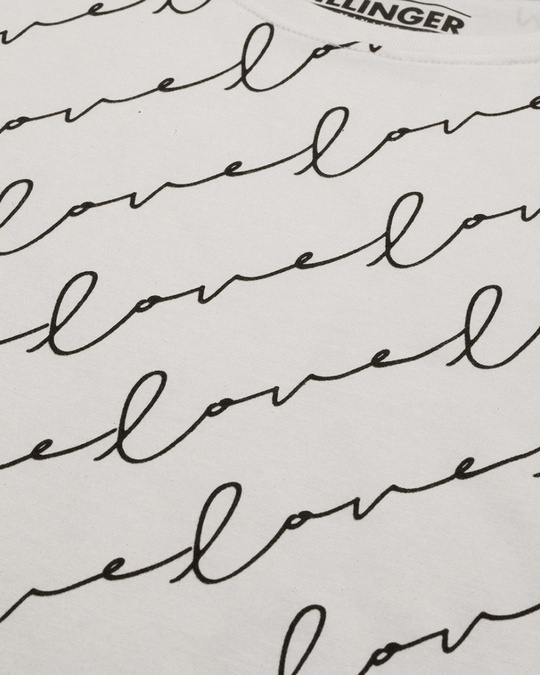 LLINGER
vel
ovelov
lovelove
lovelov
elovel
velove
lov